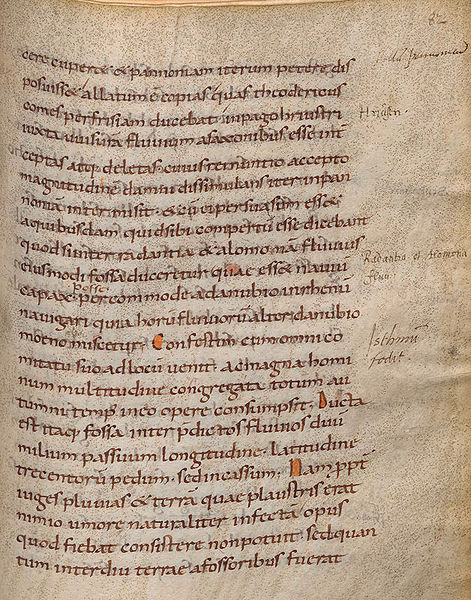 82
cere cuperet & pannoniam iterum petere dis
posuiss& allatum ē copias quas theodericus
comes per frisiam ducebat in pago hriustri
iuxta uuisura fluuium a saxonibus esse int
ceptas atq; deletas. cuius rei nuntio accepto
magnitudinē damni dissimulans iter in pan
noniā intermisit. & cū ei persuasum ess& 
a quibusdam qui id sibi compertū esse dicebant
quod si inter radantia & alomonā fluuios
eius modi fossa duceretur quae ess& nauiū
capax posse percommode a danubio in rhenū
nauigari quia horū fluuiorū alter danubio
moeno miscetur. Confestim cum omni co
mitatu suo ad locū uenit. ac magna homi
num multitudine congregata totum au
tumni temp' in eo opere consumpsit. Ducta
est itaq; fossa inter p̄dictos fluuios duū
milium passuum longitudine. latitudine
trecentorū pedum. sed in cassum. Nam ppt
iuges pluuias & terrā quae plaustris erat
nimio umore naturaliter infecta opus
quod fiebat consistere non potuit. sed quan
tum interdiu terrae a fossoribus fuerat
Radantia et Alomona
fluui
Isthmū
fodit